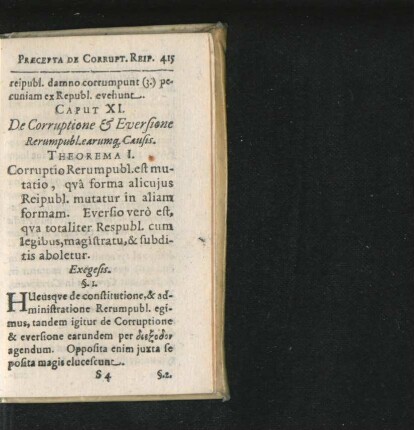 PRÆCEPTA DE CORRUPT. REIP. 415
reipubl. damno corrumpunt (3.) pe-
cuniam ex Republ. evehunt.
CAPUT XI.
De Corruptione & Eversione
Rerumpubl. earumq; Causis.
THEOREMA I.
Corruptio Rerumpubl. est mu-
tatio, qvâ forma alicujus
Reipubl. mutatur in aliam
formam. Eversio verò est,
qva totaliter Respubl. cum
legibus, magistratu, & subdi-
tis aboletur.
Exegesis.
§. 1.
HUcusqve de constitutione, & ad-
ministratione Rerumpubl. egi-
mus, tandem igitur de Corruptione
& eversione earundem per διέξοδον
agendum. Opposita enim juxta se
posita magis elucescunt.
S 4 §. 2.